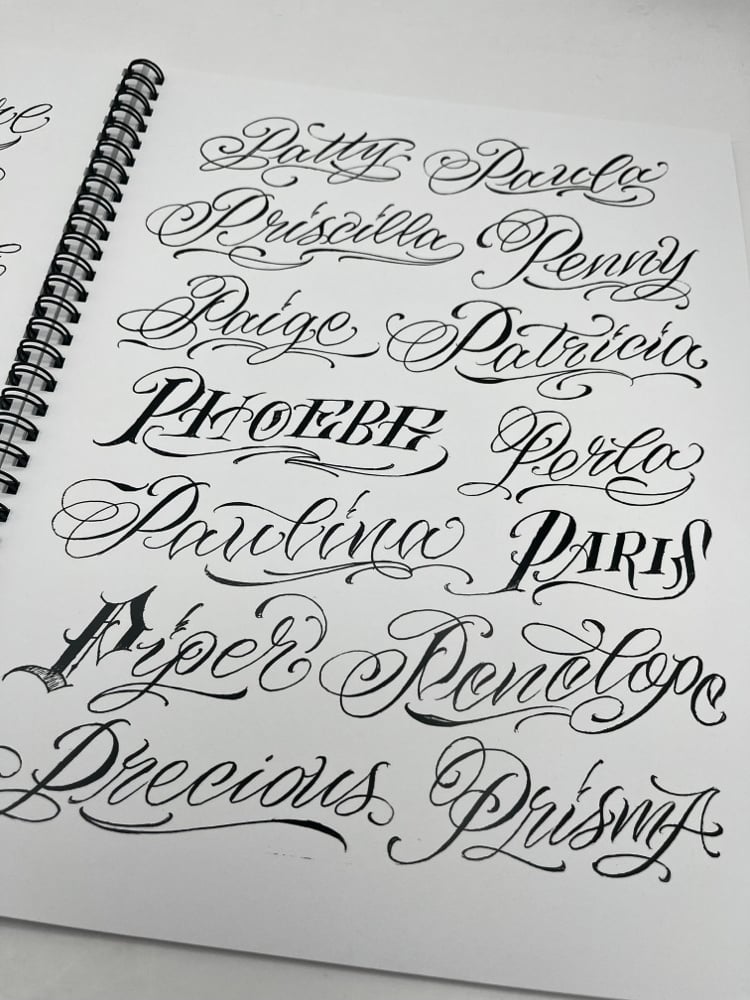 Patty Paula
Priscilla Penny
Paige Patricia
PHOEBE Perla
Paulina PARIS
Piper Penelope
Precious PrismA